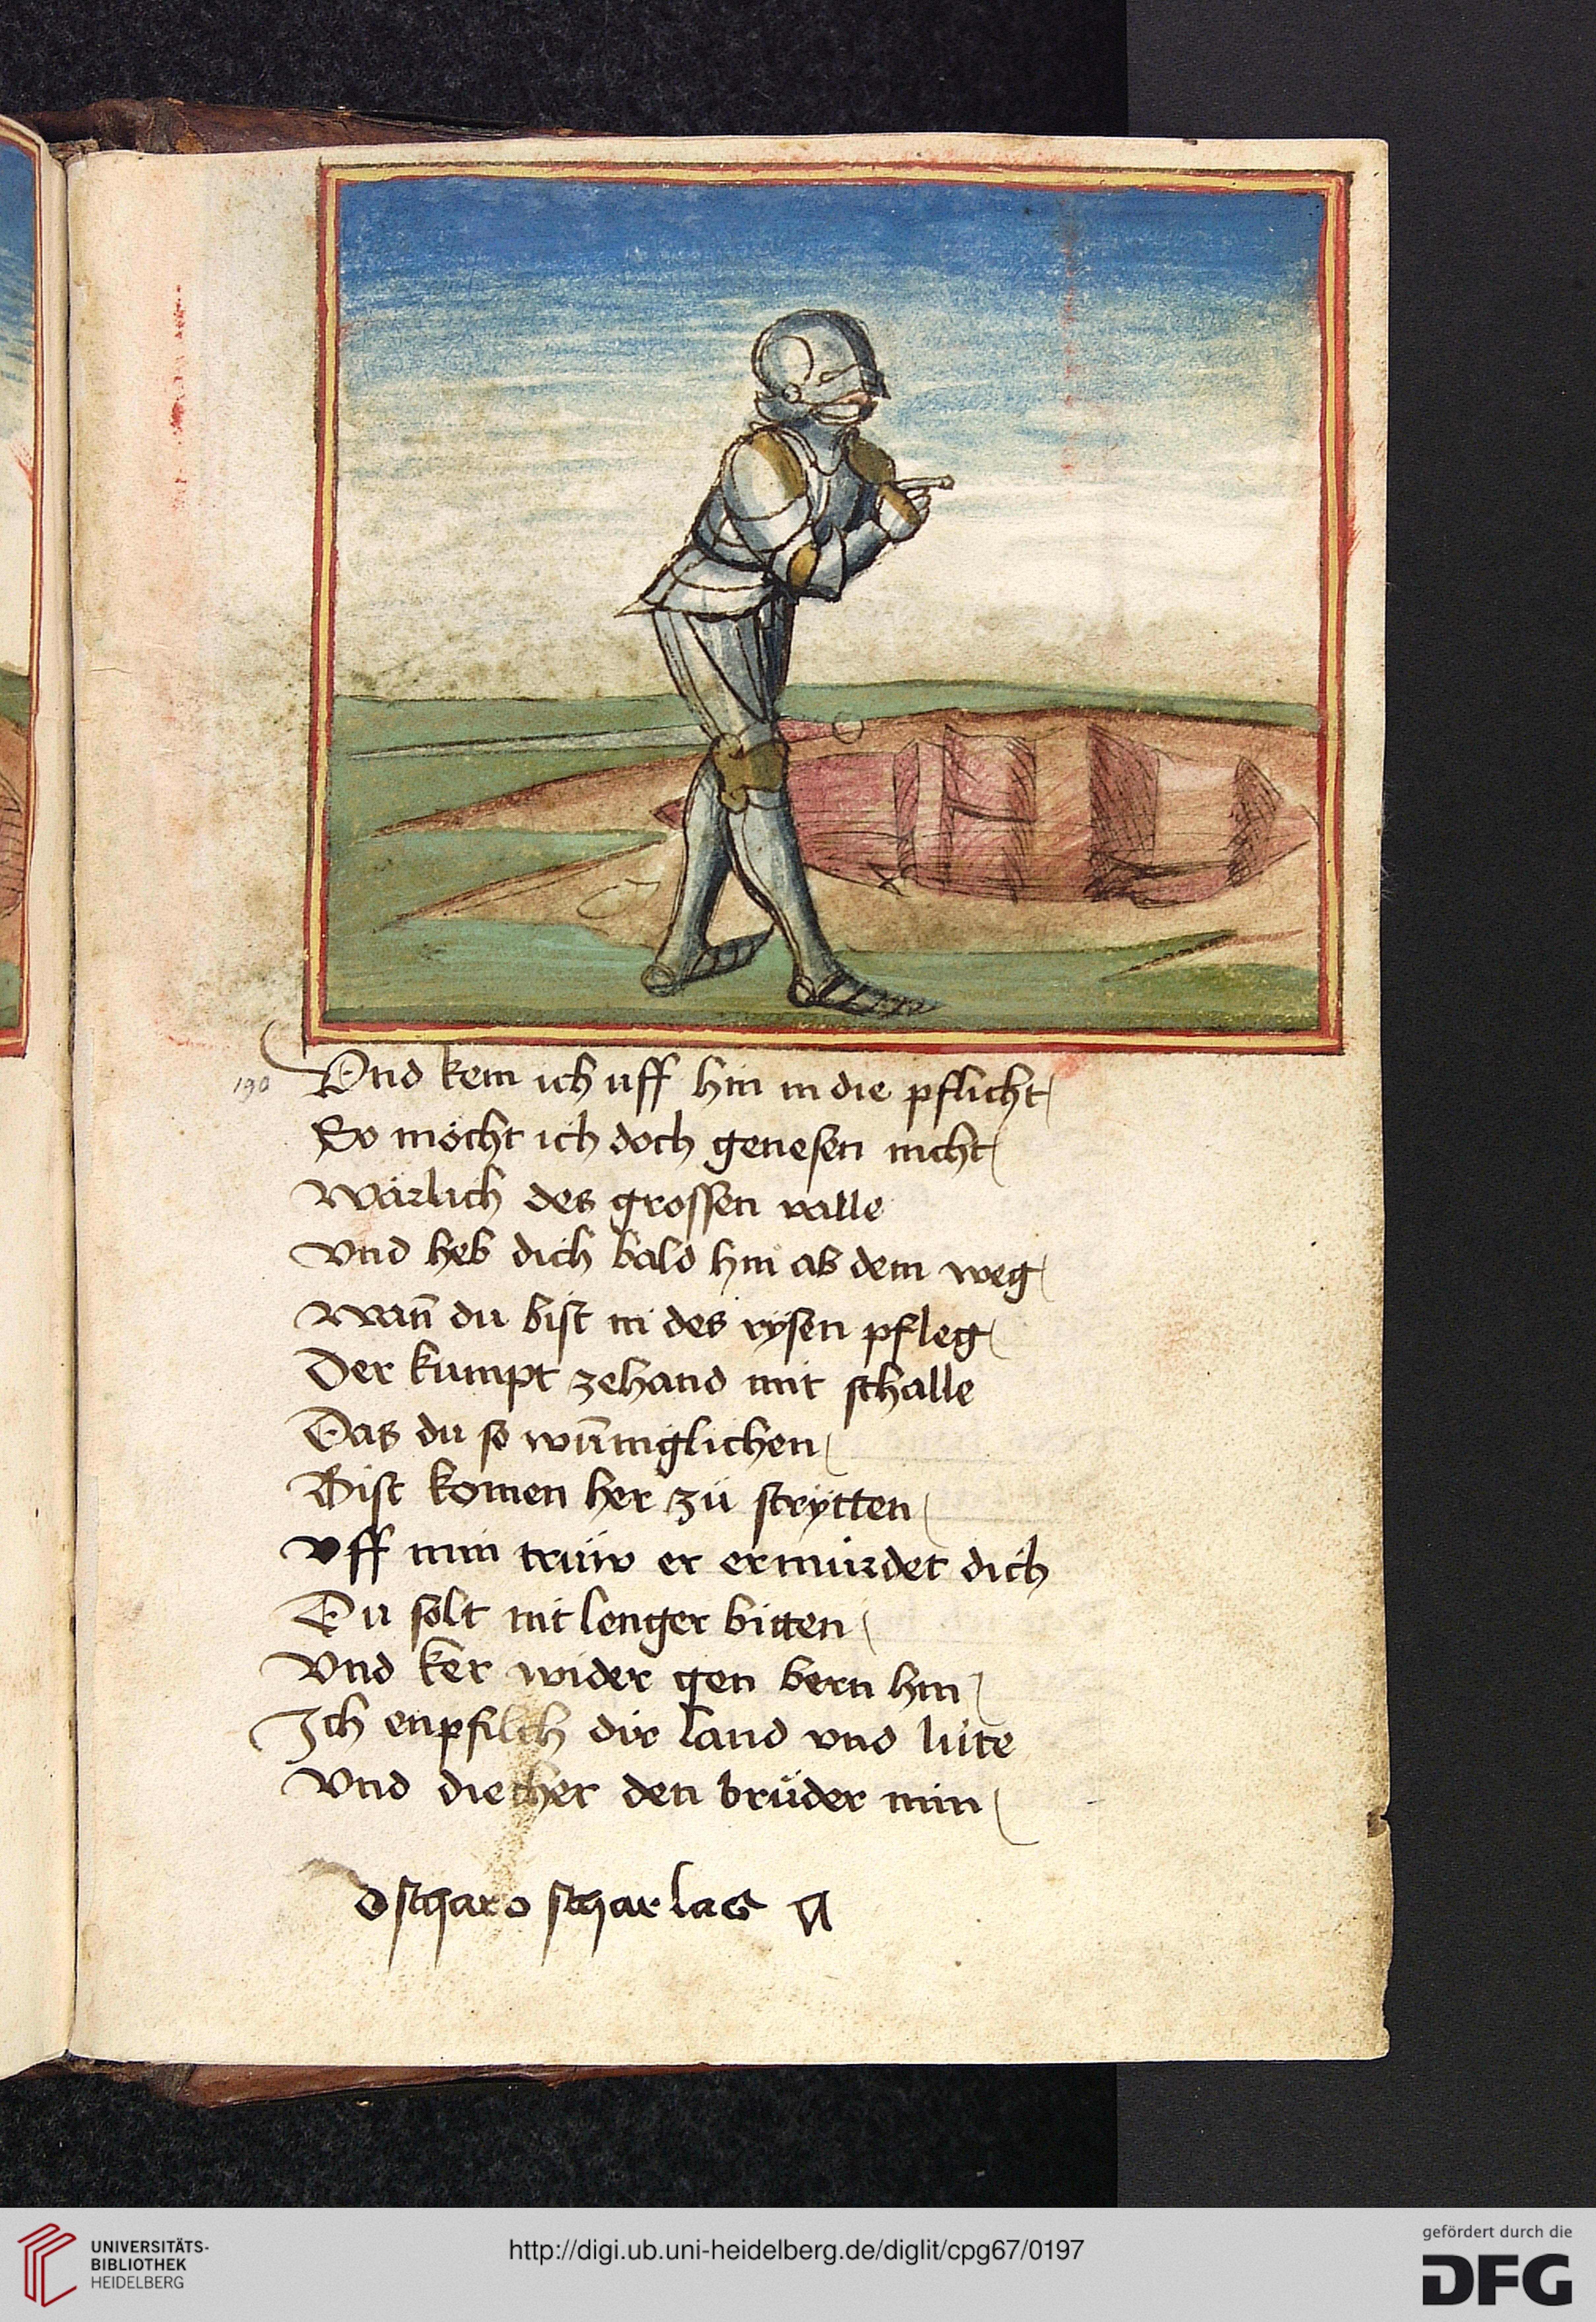 190 Vnd kem ich uff hin in die pflicht
So möcht ich doch genesen nicht
Wärlich des grossen valle
Vnd heb dich bald hin ab dem weg
Wan̄ du bist in des rÿsen pfleg
Der kumpt zehand mit schalle
Das du so wun̄niglichen
Bist komen her zü strÿtten
Vff min trüw er ermürdet dich
Du solt nit lenger bitten
Vnd ker wider gen bern hin
Ich enpfilch dir land vnd lüte
Vnd diether den brüder min
scharlaG
UNIVERSITÄTS-
BIBLIOTHEK
HEIDELBERG
http://digi.ub.uni-heidelberg.de/diglit/cpg67/0197
gefördert durch die
DFG